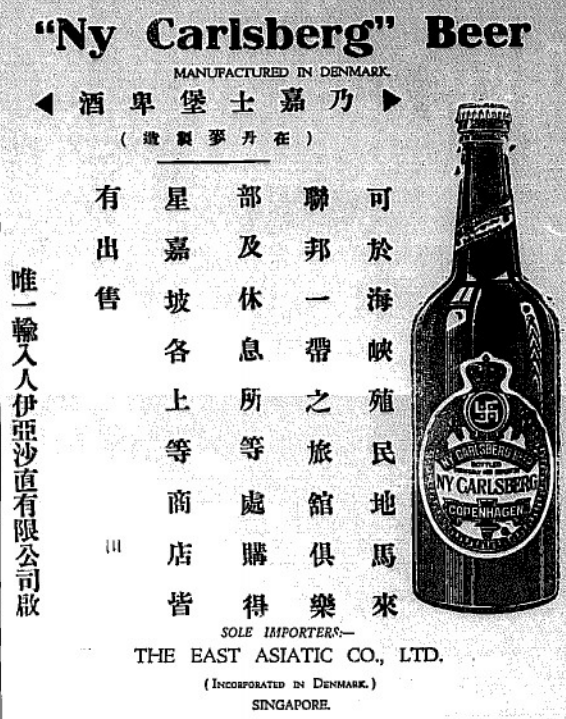 “Ny Carlsberg” Beer
MANUFACTURED IN DENMARK.
乃嘉士堡卑酒
(在丹麥製造)
可於海峽殖民地馬來
聯邦一帶之旅舘俱樂
部及休息所等處購得
星嘉坡各上等商店皆
有出售
唯一輸入人伊亞沙直有限公司啟
NY CARLSBERG
COPENHAGEN
SOLE IMPORTERS:—
THE EAST ASIATIC CO., LTD.
(INCORPORATED IN DENMARK.)
SINGAPORE.